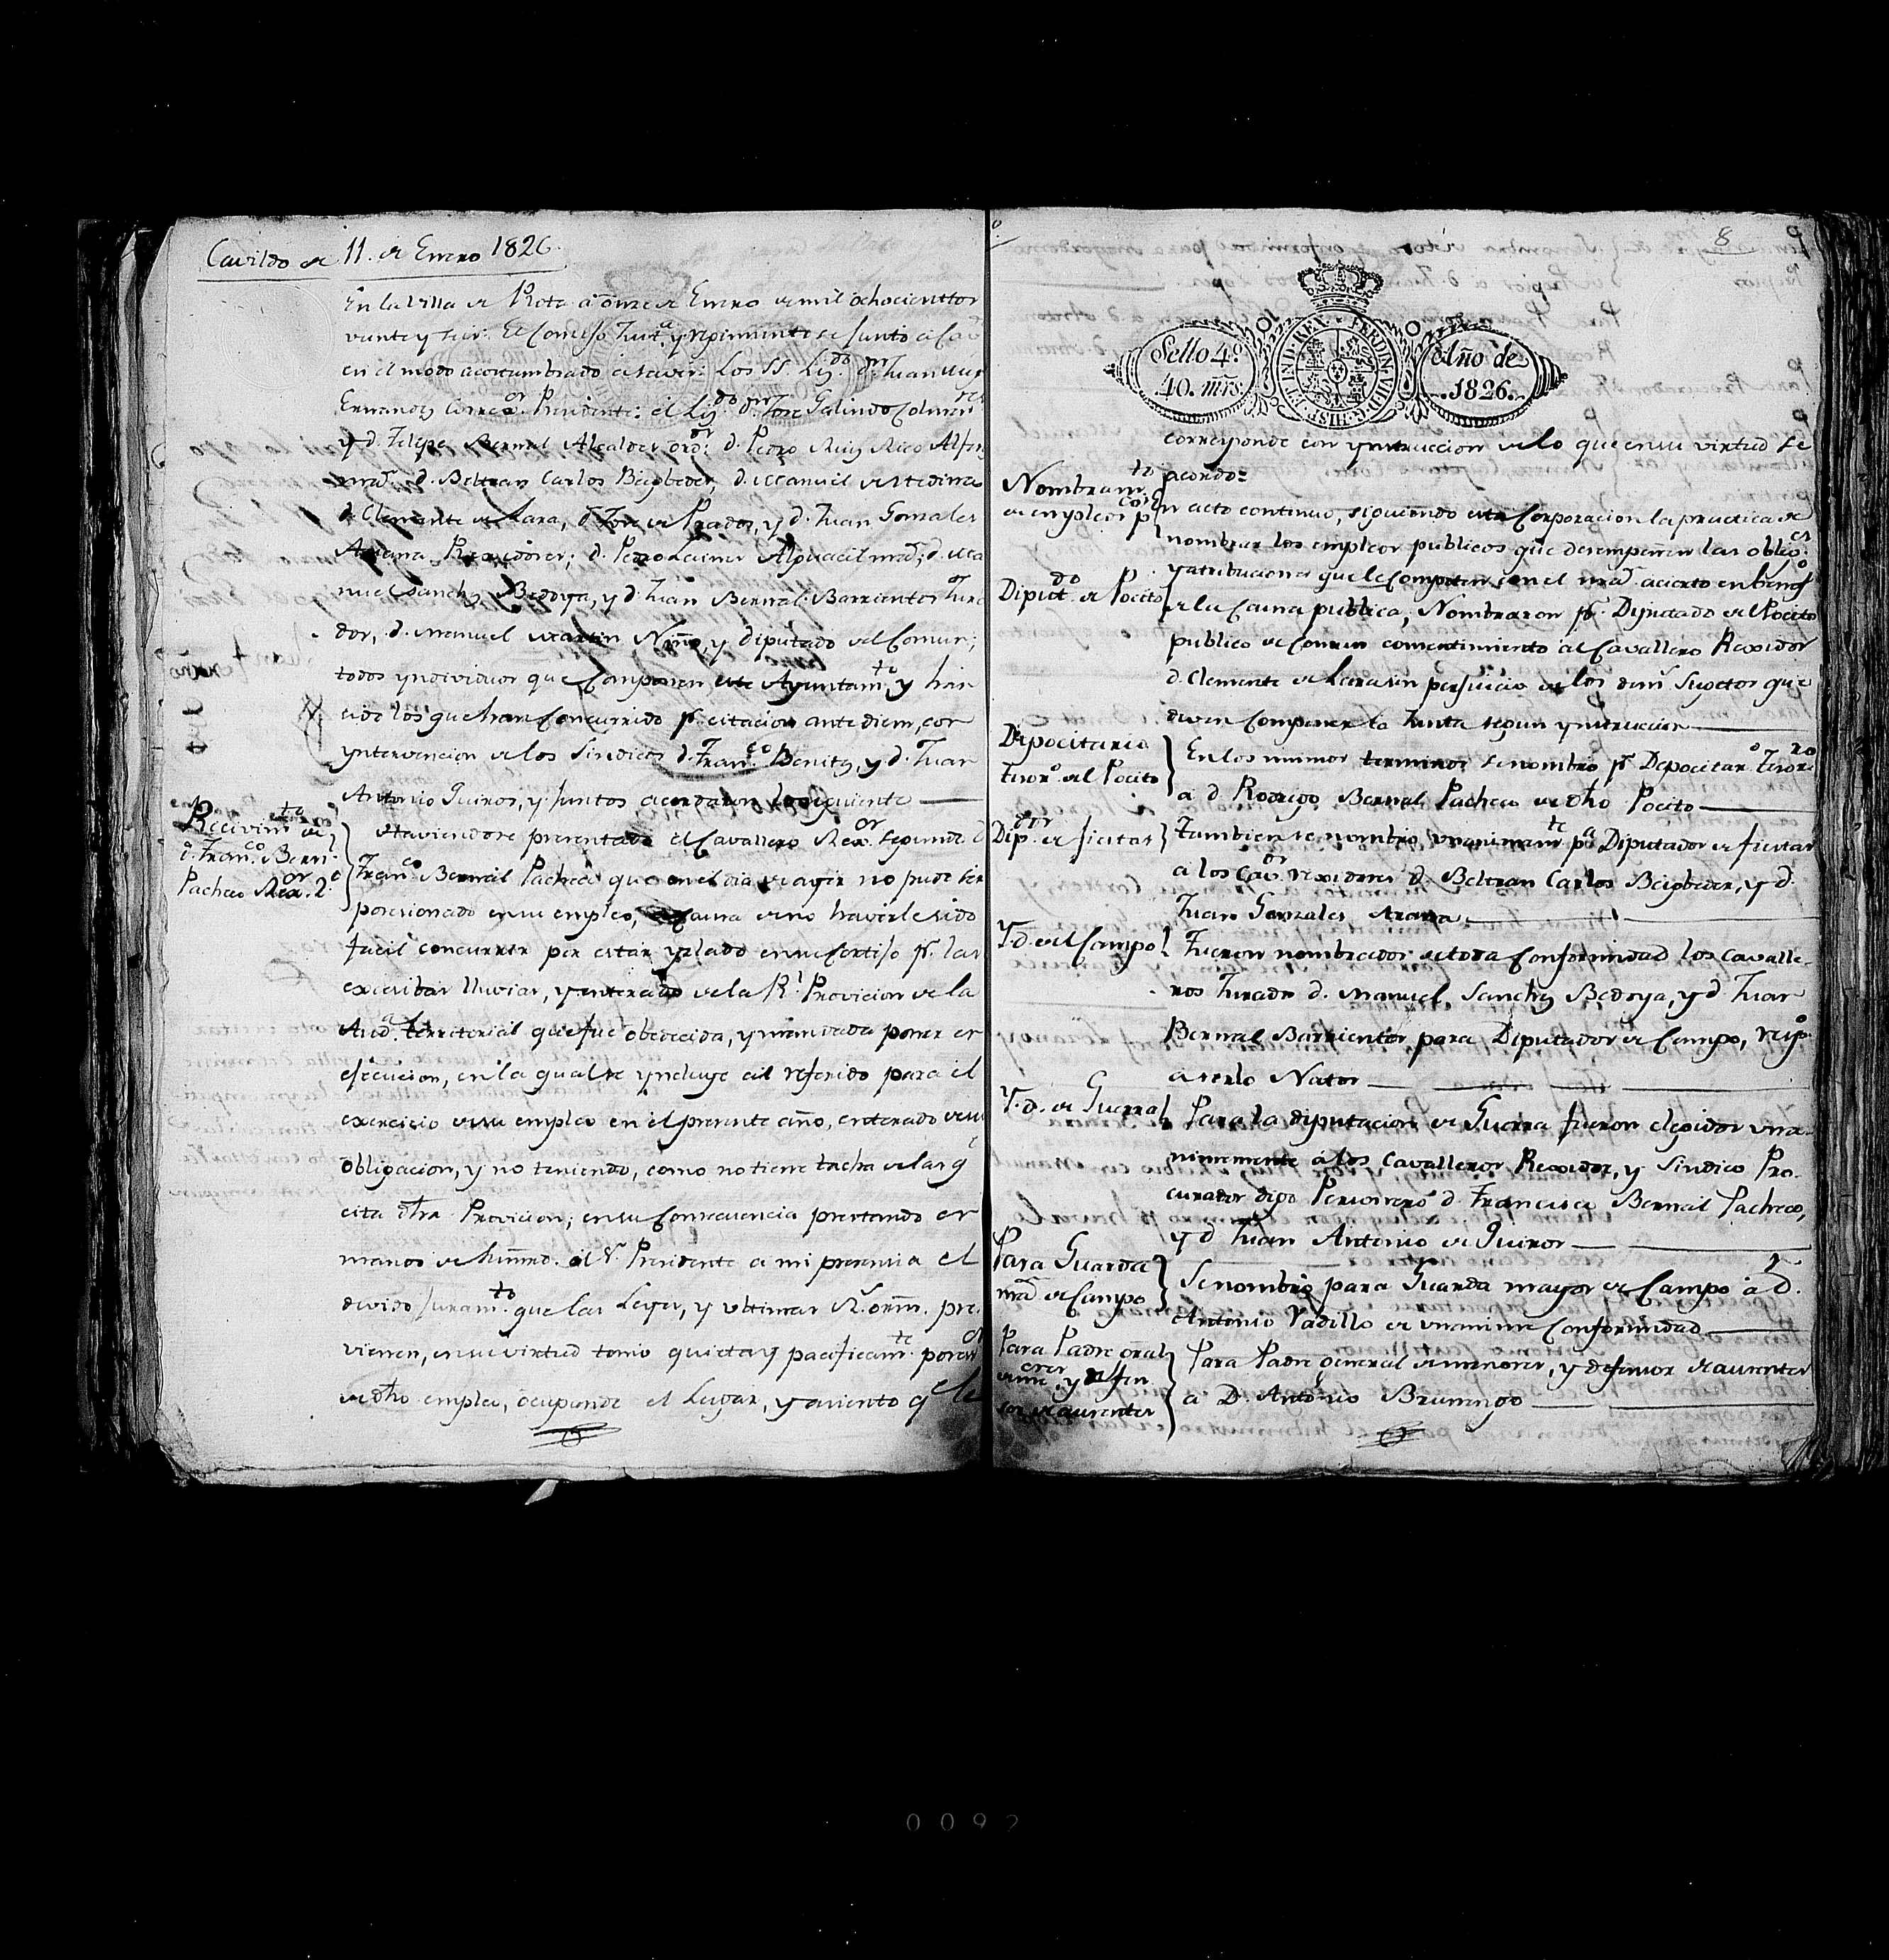 Cavildo de 11. de Enero 1826.
En la Villa de Rota à onze de Enero de mil ochocienttos
veinte y seis: El Consejo Just.ª y regimiento se junto à
en el modo acostumbrado a saver: Los SS. Liz.do d.n Juan
Ernandez Correx.or Presidente: el Liz.do d.n Jose Galindo
y d. Felipe Bernal Alcaldes ord.s d. Pedro Ruiz Rico
d. Beltran Carlos Beigbeder, d. Manuel de Medina
d. Clemente de Lara, d. Jose de Prados, y d. Juan Gonzales
Arana Rexidores; d. Pedro Laines Alguacil m.or; d. Ma
nuel Sanchez Bedoya, y d. Juan Bernal Barrientos Jura
dos, d. Manuel Martin Niño, y diputado del Comun;
todos yndividuos que Componen este Ayuntam.to y han
sido los que han Concurrido p.r citacion ante diem, con
yntervencion de los Sindicos d. Fran.co Benitez, y d. Juan
Antonio Quiros, y juntos acordaron lo siguiente
Recivim.to de
d. Fran.co Bern.l
Pacheco Rex.or 2.º
Haviendose presentado el Cavallero Rex.or segundo d
Fran.co Bernal Pacheco que en el dia de ayer no pudo ser
posesionado en su empleo, a causa de no haverle sido
facil concurrir por estar yslado en su Cortijo p.r las
excesibas lluvias, y enterado de la R.l Provicion de la
Aud.ª territorial que fue obedecida, y mandada poner en
ejecucion, en la qual se yncluye al referido para el
exercicio de su empleo en el presente año, enterado de su
obligacion, y no teniendo, como no tiene tacha de las q.e
cita dha Provicion; en su Consecuencia prestando en
manos de su md. el S.r Presidente a mi presencia el
devido juram.to que las Leyes, y ultimas R.s ornn. pre
vienen, en su virtud tomo quieta y pacificam.te poses.on
de dho empleo, ocupando el Lugar, y asiento q.e le
8
9
Sello 4.º
40. mrs.
HISP. ET IND. REX. FERDIN. VII. D. G.
Año de
1826.
corresponde con ynstruccion de lo que en su virtud se
acordo=
Nombram.to
de empleos p.cos
En acto continuo, siguiendo esta Corporacion la practica de
nombrar los empleos publicos que desempeñen las oblig.es
y atribuciones que le Competen con el m.or acierto en benef.º
Diput.do de Pocito
de la Causa publica, Nombraron p.r Diputado del Pocito
publico de comun consentimiento al Cavallero Rexidor
d. Clemente de Lara sin perjuicio de los demas Sugetos que
deven Componer la Junta segun ynstruccion
Depocitario
tesor.º del Pocito
En los mismos terminos se nombro p.r Depocitar.º Tesore.ro
a d. Rodrigo Bernal Pacheco de dho Pocito
Dip.dos de fiestas
Tambien se nombro unanimam.te p.ª Diputados de fiestas
a los Cav.os rexidores d. Beltran Carlos Beigbeder, y d.
Juan Gonzales Arana
Y.d. del Campo
Fueron nombrados de toda Conformidad los Cavalle-
ros Jurados d. Manuel Sanchez Bedoya, y d. Juan
Bernal Barrientos para Diputados de Campo, resp.º
a serlo Natos
Y.d. de Guerra
Para la diputacion de Guerra fueron elegidos una-
nimemente a los Cavalleros Rexidor, y Sindico Pro-
curador digo Personero d. Francisco Bernal Pacheco,
y d Juan Antonio de Quiros
Para Guarda
m.or de Campo
Se nombró para Guarda mayor de Campo à d.
Antonio Vadillo de unanime Conformidad
Para Padre gral
de men.es y defen
sor de ausentes
Para Padre general de menores, y defensor de ausentes
a D. Antonio Brunengo
0092